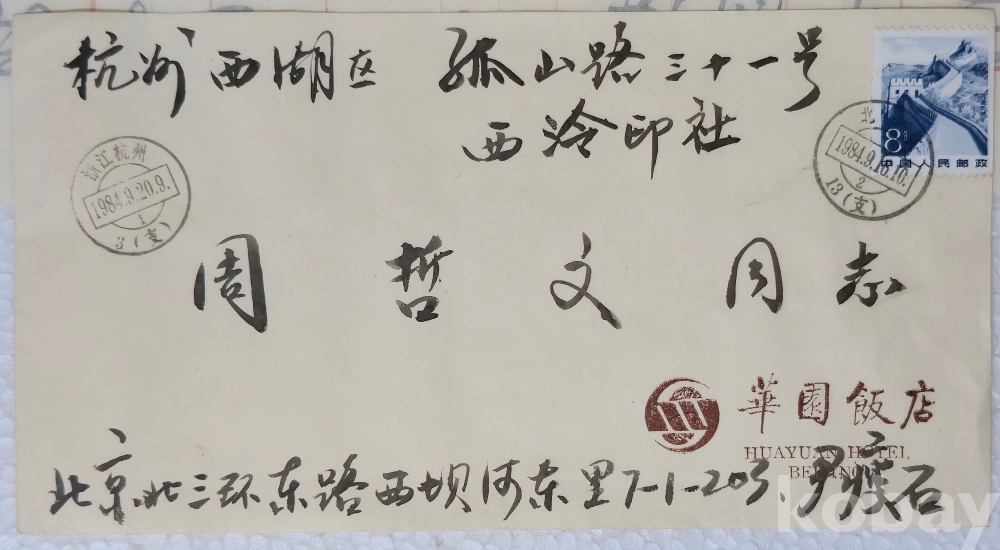 杭州西湖区 孤山路三十一号
西泠印社
8分
中国人民邮政
北
1984.9.16.16.
2
13(支)
浙江杭州
1984.9.20.9.
1
3(支)
周哲文同志
華園飯店
HUAYUAN HOTEL
BEIJING
北京北三环东路西坝河东里7-1-203.罗
石
kobay